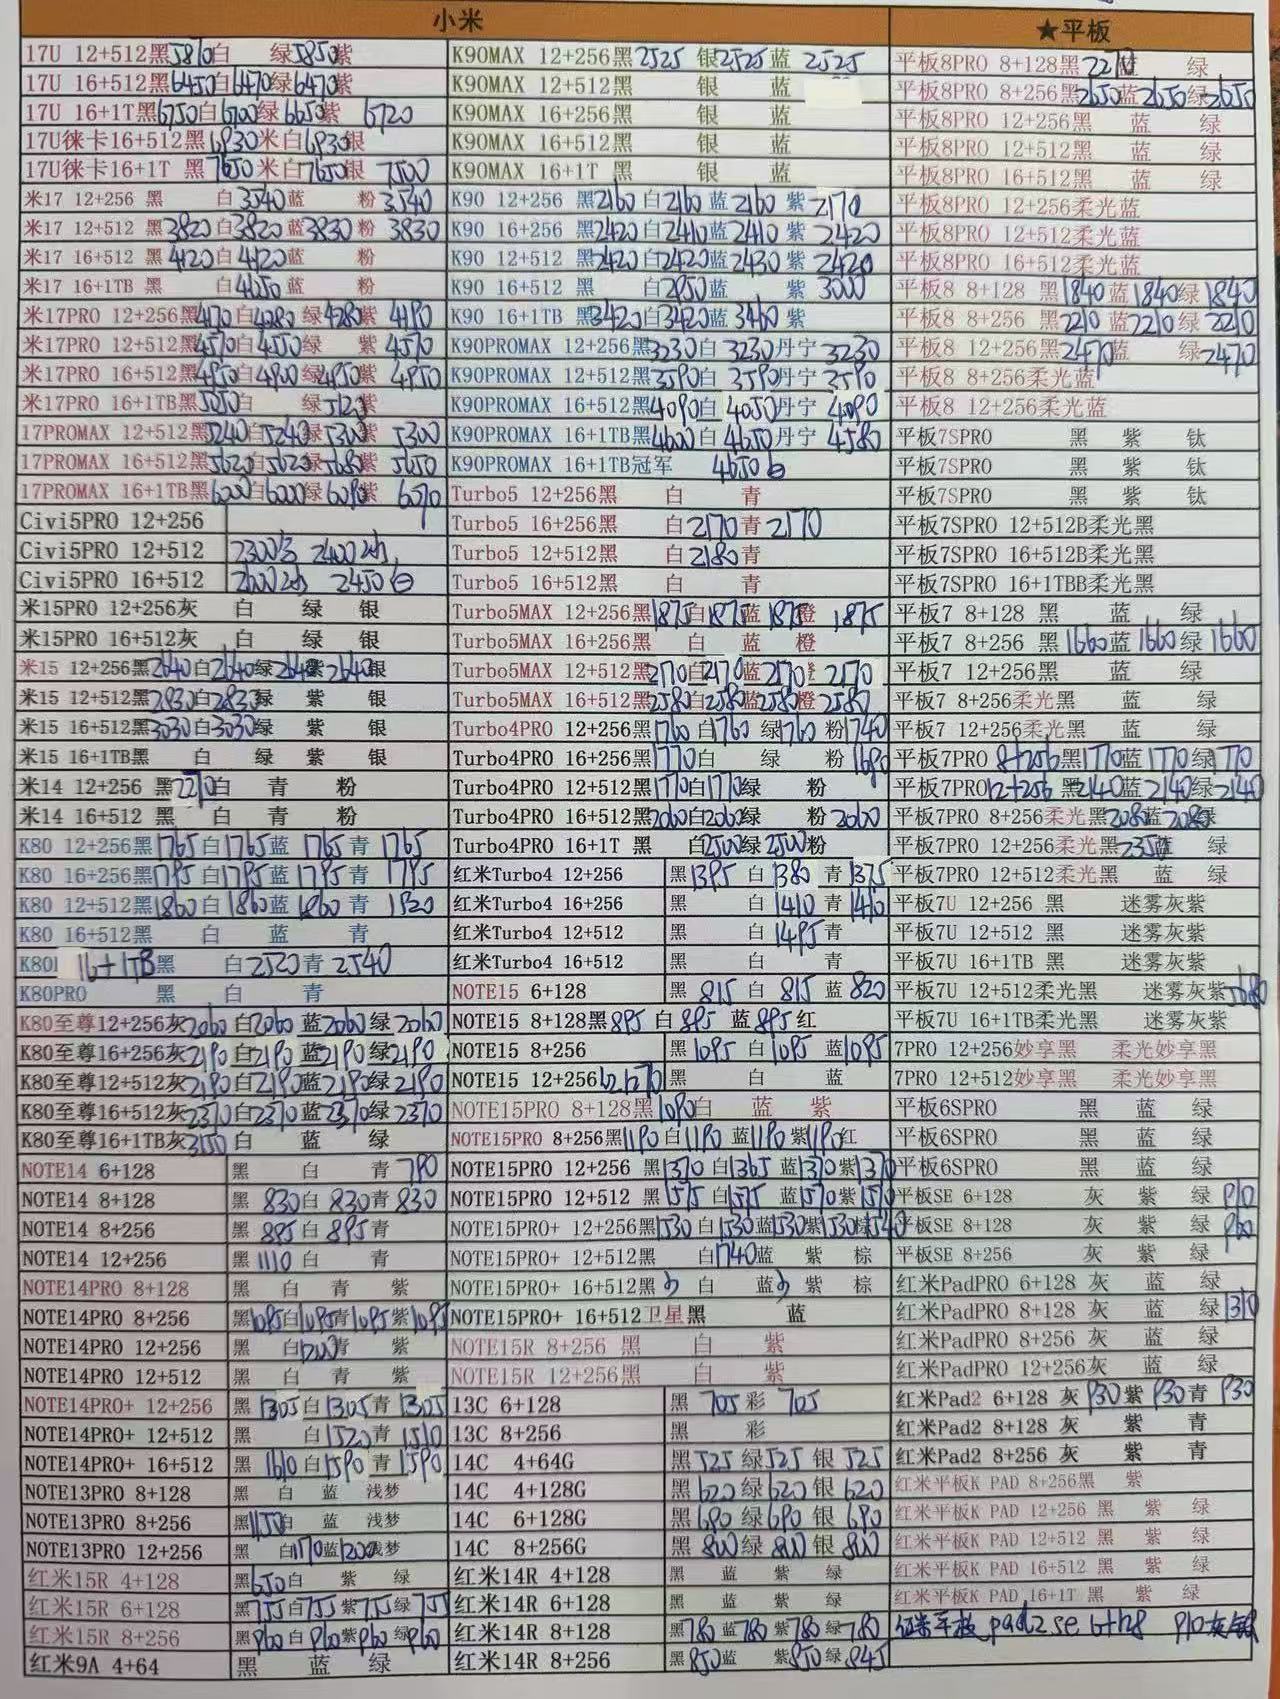 小米
17U 12+512黑5870白 绿5850紫
17U 16+512黑6450白6470绿6470紫
17U 16+1T黑6750白6700绿6650紫 6720
17U徕卡16+512黑6930米白6930银
17U徕卡16+1T 黑7650米白7650银 7500
米17 12+256 黑 白3540蓝 粉3540
米17 12+512 黑3820白3820蓝3830粉 3830
米17 16+512 黑4120白4120蓝 粉
米17 16+1TB 黑 白4650蓝 粉
米17PRO 12+256黑4170白4280 绿4280紫 4190
米17PRO 12+512黑4570白4550绿 紫 4570
米17PRO 16+512黑4950白4900绿4950紫 4950
米17PRO 16+1TB黑5250白 绿5120紫
17PROMAX 12+512黑5240白5240绿5300紫 5300
17PROMAX 16+512黑5620白5620绿5680紫 5650
17PROMAX 16+1TB黑6000白6000绿6090紫 6070
Civi5PRO 12+256
Civi5PRO 12+512
Civi5PRO 16+512
米15PRO 12+256灰 白 绿 银
米15PRO 16+512灰 白 绿 银
米15 12+256黑2640白2640绿2640紫2640银
米15 12+512黑2830白2830绿 紫 银
米15 16+512黑3030白3030绿 紫 银
米15 16+1TB黑 白 绿 紫 银
米14 12+256 黑2270白 青 粉
米14 16+512 黑 白 青 粉
K80 12+256黑1765白1765蓝 1765青 1765
K80 16+256黑1795白1795蓝 1795青 1795
K80 12+512黑1860白1860蓝 1860青 1820
K80 16+512黑 白 蓝 青
K80 16+1TB黑 白2520青2540
K80PRO 黑 白 青
K80至尊12+256灰2060白2060蓝2060绿2060
K80至尊16+256灰2190白2190蓝2190绿2190
K80至尊12+512灰2190白2190蓝2190绿2190
K80至尊16+512灰2370白2370蓝2370绿2370
K80至尊16+1TB灰3150白 蓝 绿
NOTE14 6+128 黑 白 青790
NOTE14 8+128 黑 830白 830青 830
NOTE14 8+256 黑 895白 895青
NOTE14 12+256 黑1110白 青
NOTE14PRO 8+128 黑 白 青 紫
NOTE14PRO 8+256 黑1095白1095青1095紫1095
NOTE14PRO 12+256 黑 白1200青 紫
NOTE14PRO 12+512 黑 白 青 紫
NOTE14PRO+ 12+256 黑1305白1305青1305
NOTE14PRO+ 12+512 黑 白1520青1510
NOTE14PRO+ 16+512 黑 1610白1590青1590
NOTE13PRO 8+128 黑 白 蓝 浅梦
NOTE13PRO 8+256 黑1150白 蓝 浅梦
NOTE13PRO 12+256 黑 白1170蓝1200浅梦
红米15R 4+128 黑650白 紫 绿
红米15R 6+128 黑755白755紫755绿755
红米15R 8+256 黑960白960紫960绿960
红米9A 4+64 黑 蓝 绿
K90MAX 12+256黑2525 银2525蓝 2525
K90MAX 12+512黑 银 蓝
K90MAX 16+256黑 银 蓝
K90MAX 16+512黑 银 蓝
K90MAX 16+1T 黑 银 蓝
K90 12+256 黑2160白2160蓝2160紫2170
K90 16+256 黑2420白2410蓝2410紫2420
K90 12+512 黑2420白2420蓝2430紫2420
K90 16+512 黑 白2950蓝 紫3000
K90 16+1TB 黑3420白3420蓝3460紫
K90PROMAX 12+256黑3230白 3230丹宁 3230
K90PROMAX 12+512黑3590白 3590丹宁 3590
K90PROMAX 16+512黑4090白 4050丹宁 4090
K90PROMAX 16+1TB黑4600白 4650丹宁 4580
K90PROMAX 16+1TB冠军 4650白
Turbo5 12+256黑 白 青
Turbo5 16+256黑 白2170青2170
Turbo5 12+512黑 白2180青
Turbo5 16+512黑 白 青
Turbo5MAX 12+256黑1875白1875蓝1875橙 1875
Turbo5MAX 16+256黑 白 蓝 橙
Turbo5MAX 12+512黑2170白2170蓝2170 2170
Turbo5MAX 16+512黑2580白2580蓝2580橙2580
Turbo4PRO 12+256黑1760 白1760 绿1760 粉1740
Turbo4PRO 16+256黑1770白 绿 粉1690
Turbo4PRO 12+512黑1770白1770绿 粉
Turbo4PRO 16+512黑2060白2060绿 粉2060
Turbo4PRO 16+1T 黑 白2500绿2500粉
红米Turbo4 12+256 黑1395 白1380 青1375
红米Turbo4 16+256 黑 白1410 青1410
红米Turbo4 12+512 黑 白1495青
红米Turbo4 16+512 黑 白 青
NOTE15 6+128 黑 815 白 815 蓝820
NOTE15 8+128黑895 白 895 蓝895红
NOTE15 8+256 黑1095 白1095 蓝1095
NOTE15 12+256 黑 白 蓝
NOTE15PRO 8+128黑1090白 蓝 紫
NOTE15PRO 8+256黑1190白1190 蓝1190紫1190红
NOTE15PRO 12+256 黑1370 白1365 蓝1370紫1370
NOTE15PRO 12+512 黑1575 白1575 蓝1570紫1570
NOTE15PRO+ 12+256黑1530 白1530蓝1530紫1530棕1540
NOTE15PRO+ 12+512黑 白1740蓝 紫 棕
NOTE15PRO+ 16+512黑 白 蓝 紫 棕
NOTE15PRO+ 16+512卫星黑 蓝
NOTE15R 8+256 黑 白 紫
NOTE15R 12+256黑 白 紫
13C 6+128 黑 705 彩 705
13C 8+256 黑 彩
14C 4+64G 黑525绿525银525
14C 4+128G 黑620绿620银620
14C 6+128G 黑690绿690银690
14C 8+256G 黑800绿800银800
红米14R 4+128 黑 蓝 紫 绿
红米14R 6+128 黑 蓝 紫 绿
红米14R 8+128 黑780蓝780紫780绿780
红米14R 8+256 黑850蓝 紫850绿845
★平板
平板8PRO 8+128黑2270蓝 绿
平板8PRO 8+256黑2650蓝2650绿2650
平板8PRO 12+256黑 蓝 绿
平板8PRO 12+512黑 蓝 绿
平板8PRO 16+512黑 蓝 绿
平板8PRO 12+256柔光蓝
平板8PRO 12+512柔光蓝
平板8PRO 16+512柔光蓝
平板8 8+128 黑1840蓝1840绿1840
平板8 8+256 黑2210蓝2210绿2210
平板8 12+256黑2470蓝 绿2470
平板8 8+256柔光蓝
平板8 12+256柔光蓝
平板7SPRO 黑 紫 钛
平板7SPRO 黑 紫 钛
平板7SPRO 黑 紫 钛
平板7SPRO 12+512B柔光黑
平板7SPRO 16+512B柔光黑
平板7SPRO 16+1TBB柔光黑
平板7 8+128 黑 蓝 绿
平板7 8+256 黑1660蓝1660绿1660
平板7 12+256黑 蓝 绿
平板7 8+256柔光黑 蓝 绿
平板7 12+256柔光黑 蓝 绿
平板7PRO 8+256黑1770蓝1770绿1770
平板7PRO12+256 黑2140蓝2140绿2140
平板7PRO 8+256柔光黑2080蓝2080绿
平板7PRO 12+256柔光黑2350蓝 绿
平板7PRO 12+512柔光黑 蓝 绿
平板7U 12+256 黑 迷雾灰紫
平板7U 12+512 黑 迷雾灰紫
平板7U 16+1TB 黑 迷雾灰紫
平板7U 12+512柔光黑 迷雾灰紫3680
平板7U 16+1TB柔光黑 迷雾灰紫
7PRO 12+256妙享黑 柔光妙享黑
7PRO 12+512妙享黑 柔光妙享黑
平板6SPRO 黑 蓝 绿
平板6SPRO 黑 蓝 绿
平板6SPRO 黑 蓝 绿
平板SE 6+128 灰 紫 绿910
平板SE 8+128 灰 紫 绿960
平板SE 8+256 灰 紫 绿
红米PadPRO 6+128 灰 蓝 绿
红米PadPRO 8+128 灰 蓝 绿1310
红米PadPRO 8+256 灰 蓝 绿
红米PadPRO 12+256灰 蓝 绿
红米Pad2 6+128 灰 930紫 930青 930
红米Pad2 8+128 灰 紫 青
红米Pad2 8+256 灰 紫 青
红米平板K PAD 8+256黑 紫
红米平板K PAD 12+256 黑 紫 绿
红米平板K PAD 12+512 黑 紫 绿
红米平板K PAD 16+512 黑 紫 绿
红米平板K PAD 16+1T 黑 紫 绿
红米平板 pad2se 6+128 910灰